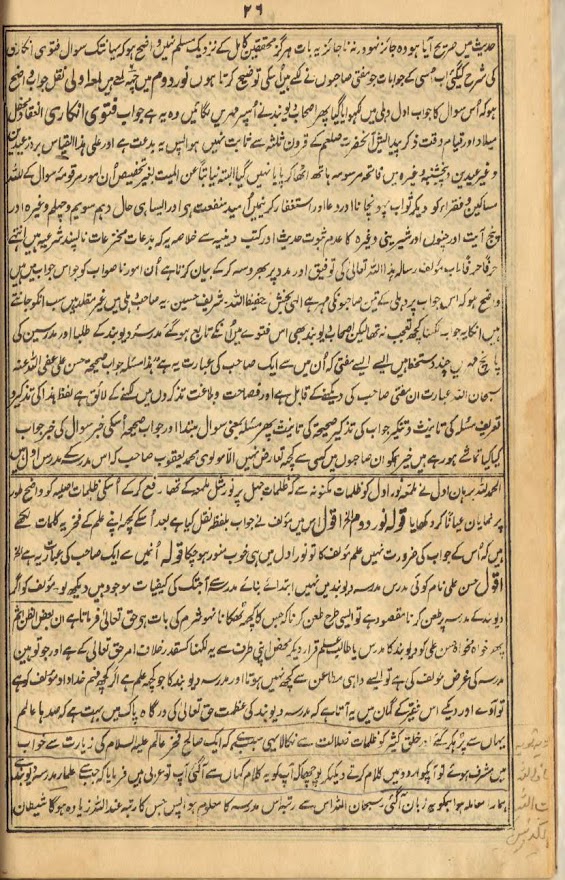 ۲۶
حدیث میں صریح آیا ہو وہ جائز نہو ورنہ ناجائز یہ بات ہرگز محققین کامل کے نزدیک مسلم نہیں واضح ہو کہ یہانتک سوال فتوی انکاری
کی شرح کیگئی اب اسی کے جوابات جو مفتی صاحبوں نے لکھے ہیں اسکی توضیح کرتا ہوں نور دوم میں لمعہ اولی نقل جواب واضح
ہو کہ اس سوال کا جواب اول دہلی میں لکھوایا گیا پھر اصحاب دیوبند نے اسپر مہریں لگائیں وہ یہ ہے جواب فتوی انکاری انعقاد محفل
میلاد اور قیام وقت ذکر پیدائش آنحضرت صلعم کے قرون ثلثہ سے ثابت نہیں ہوا پس یہ بدعت ہے اور علی ہذا القیاس بروز عیدین
و غیر عیدین و پنجشنبہ وغیرہ میں فاتحہ مرسومہ ہاتھ اٹھا کر پایا نہیں گیا البتہ نیابتاً عن المیت بغیر تخصیص ان امور مرقومہ سوال کے للہ
مساکین و فقراء کو دیکر ثواب پہونچانا اور دعا اور استغفار کرنیمیں امید منفعت ہے اور ایسا ہی حال دہم سویم و چہلم وغیرہ اور
پنج آیت اور چنوں اور شیرینی وغیرہ کا عدم ثبوت حدیث اور کتب دینیہ سے خلاصہ یہ کہ بدعات مخترعات ناپسند شرعیہ ہیں انتہے
حرفاً حرفاً اب مؤلف رسالہ ہذا اللہ تعالی کی توفیق اور مدد پر بھروسہ کر کے بیان کرتا ہے ان امور ناصواب کو جو اس جواب میں ہیں
واضح ہو کہ اس جواب پر دہلی کے تین صاحبونکی مہر ہے الہی بخش حفیظ اللہ شریف حسین یہ صاحب دہلی میں غیر مقلد ہیں سب انکو جانتے
ہیں انکا یہ جواب لکھنا کچھ تعجب نہ تھا لیکن اصحاب دیوبند بھی اس فتوے میں انکے تابع ہو گئے مدرسہ دیوبند کے طلبا اور مدرسین کی
پانچ مہریں چند دستخط ہیں ایسے ایسے مفتی کہ ان میں سے ایک صاحب کی عبارت یہ ہے ہذا مسئلہ جواب صحیحۃ حسن علی عفی اللہ عنہ
سبحان اللہ عبارت ان مفتی صاحب کی دیکھنے کے قابل ہے اور فصاحت و بلاغت تذکروں میں لکھنے کے لائق ہے لفظ ہذا کی تذکیر و
تعریف مسئلہ کی تانیث و تنکیر جواب کی تذکیر صحیحۃ کی تانیث پھر مسئلہ بمعنی سوال مبتدا اور جواب صحیحہ اسکی خبر سوال کی خبر جواب
کیا کیا تماشے ہو رہے ہیں خیر ہمکو ان صاحبوں میں کسی سے کچھ تعارض نہیں الا مولوی محمد یعقوب صاحب کہ اس مدرسہ کے مدرس اول ہیں
الحمد للہ برہان اول نے لمعہ نور اول کو ظلمات مکنونہ سے کہ ظلمات جہل پر نور شمل ملمعہ کے تھا رفع کر کے اسکی ظلمات اصلیہ کو واضح طور
پر نمایاں عیاناً کر دکھایا قولہ نور دوم الخ اقول اس میں مؤلف نے جواب بلفظ نقل کیا ہے بعد اسکے کچھ اپنے علم کے فخریہ کلمات لکھے
ہیں کہ اسکے جواب کی ضرورت نہیں علم مؤلف کا تو نور اول میں ہی خوب منور ہو چکا قولہ انمیں سے ایک صاحب کی عبارت یہ ہے الخ
اقول حسن علی نام کوئی مدرس مدرسہ دیوبند میں نہیں ابتدائے بنائے مدرسہ سے آجتک کی کیفیات موجود ہیں دیکھ لو۔ مؤلف کو اگر
دیوبند کے مدرسہ پر طعن کرنا مقصود ہے تو ایسی طرح طعن کرنا کہ جس کا کچھ ٹھکانا نہو شرم کی بات ہے حق تعالی فرماتا ہے ان بعض الظن اثم
پھر خواہ مخواہ حسن علی کو دیوبند کا مدرس یا طالب علم قرار دیکر محض اپنی طرف سے یہ لکھنا کسقدر خلاف امر حق تعالی کے ہے اور جو توہین
مدرسہ کی غرض مؤلف کی ہے تو ایسے واہی مطاعن سے کچھ نہیں ہوتا اور مدرسہ دیوبند کا جو کچھ علم ہے اگر کچھ فہم خداداد مؤلف کو ہے
تو آوے اور دیکھے اس فقیر کے گمان میں یہ آتا ہے کہ مدرسہ دیوبند کی عظمت حق تعالی کی درگاہ پاک میں بہت ہے کہ صدہا عالم
یہاں سے پڑھ کر گئے اور خلق کثیر کو ظلمات ضلالت سے نکالا یہی سبب ہے کہ ایک صالح فخر عالم علیہ السلام کی زیارت سے خواب
میں مشرف ہوئے تو آپکو اردو میں کلام کرتے دیکھ کر پوچھا کہ آپ کو یہ کلام کہاں سے آگئی آپ تو عربی ہیں فرمایا کہ جب سے علماء مدرسہ دیوبند سے
ہمارا معاملہ ہوا ہمکو یہ زبان آگئی سبحان اللہ اس سے رتبہ اس مدرسہ کا معلوم ہوا پس جس کا رتبہ عند اللہ زیادہ ہوگا شیطان